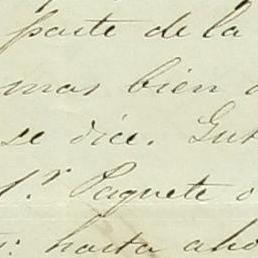 parte de la
mas bien
se dice. Gut
Paquete
hasta aho